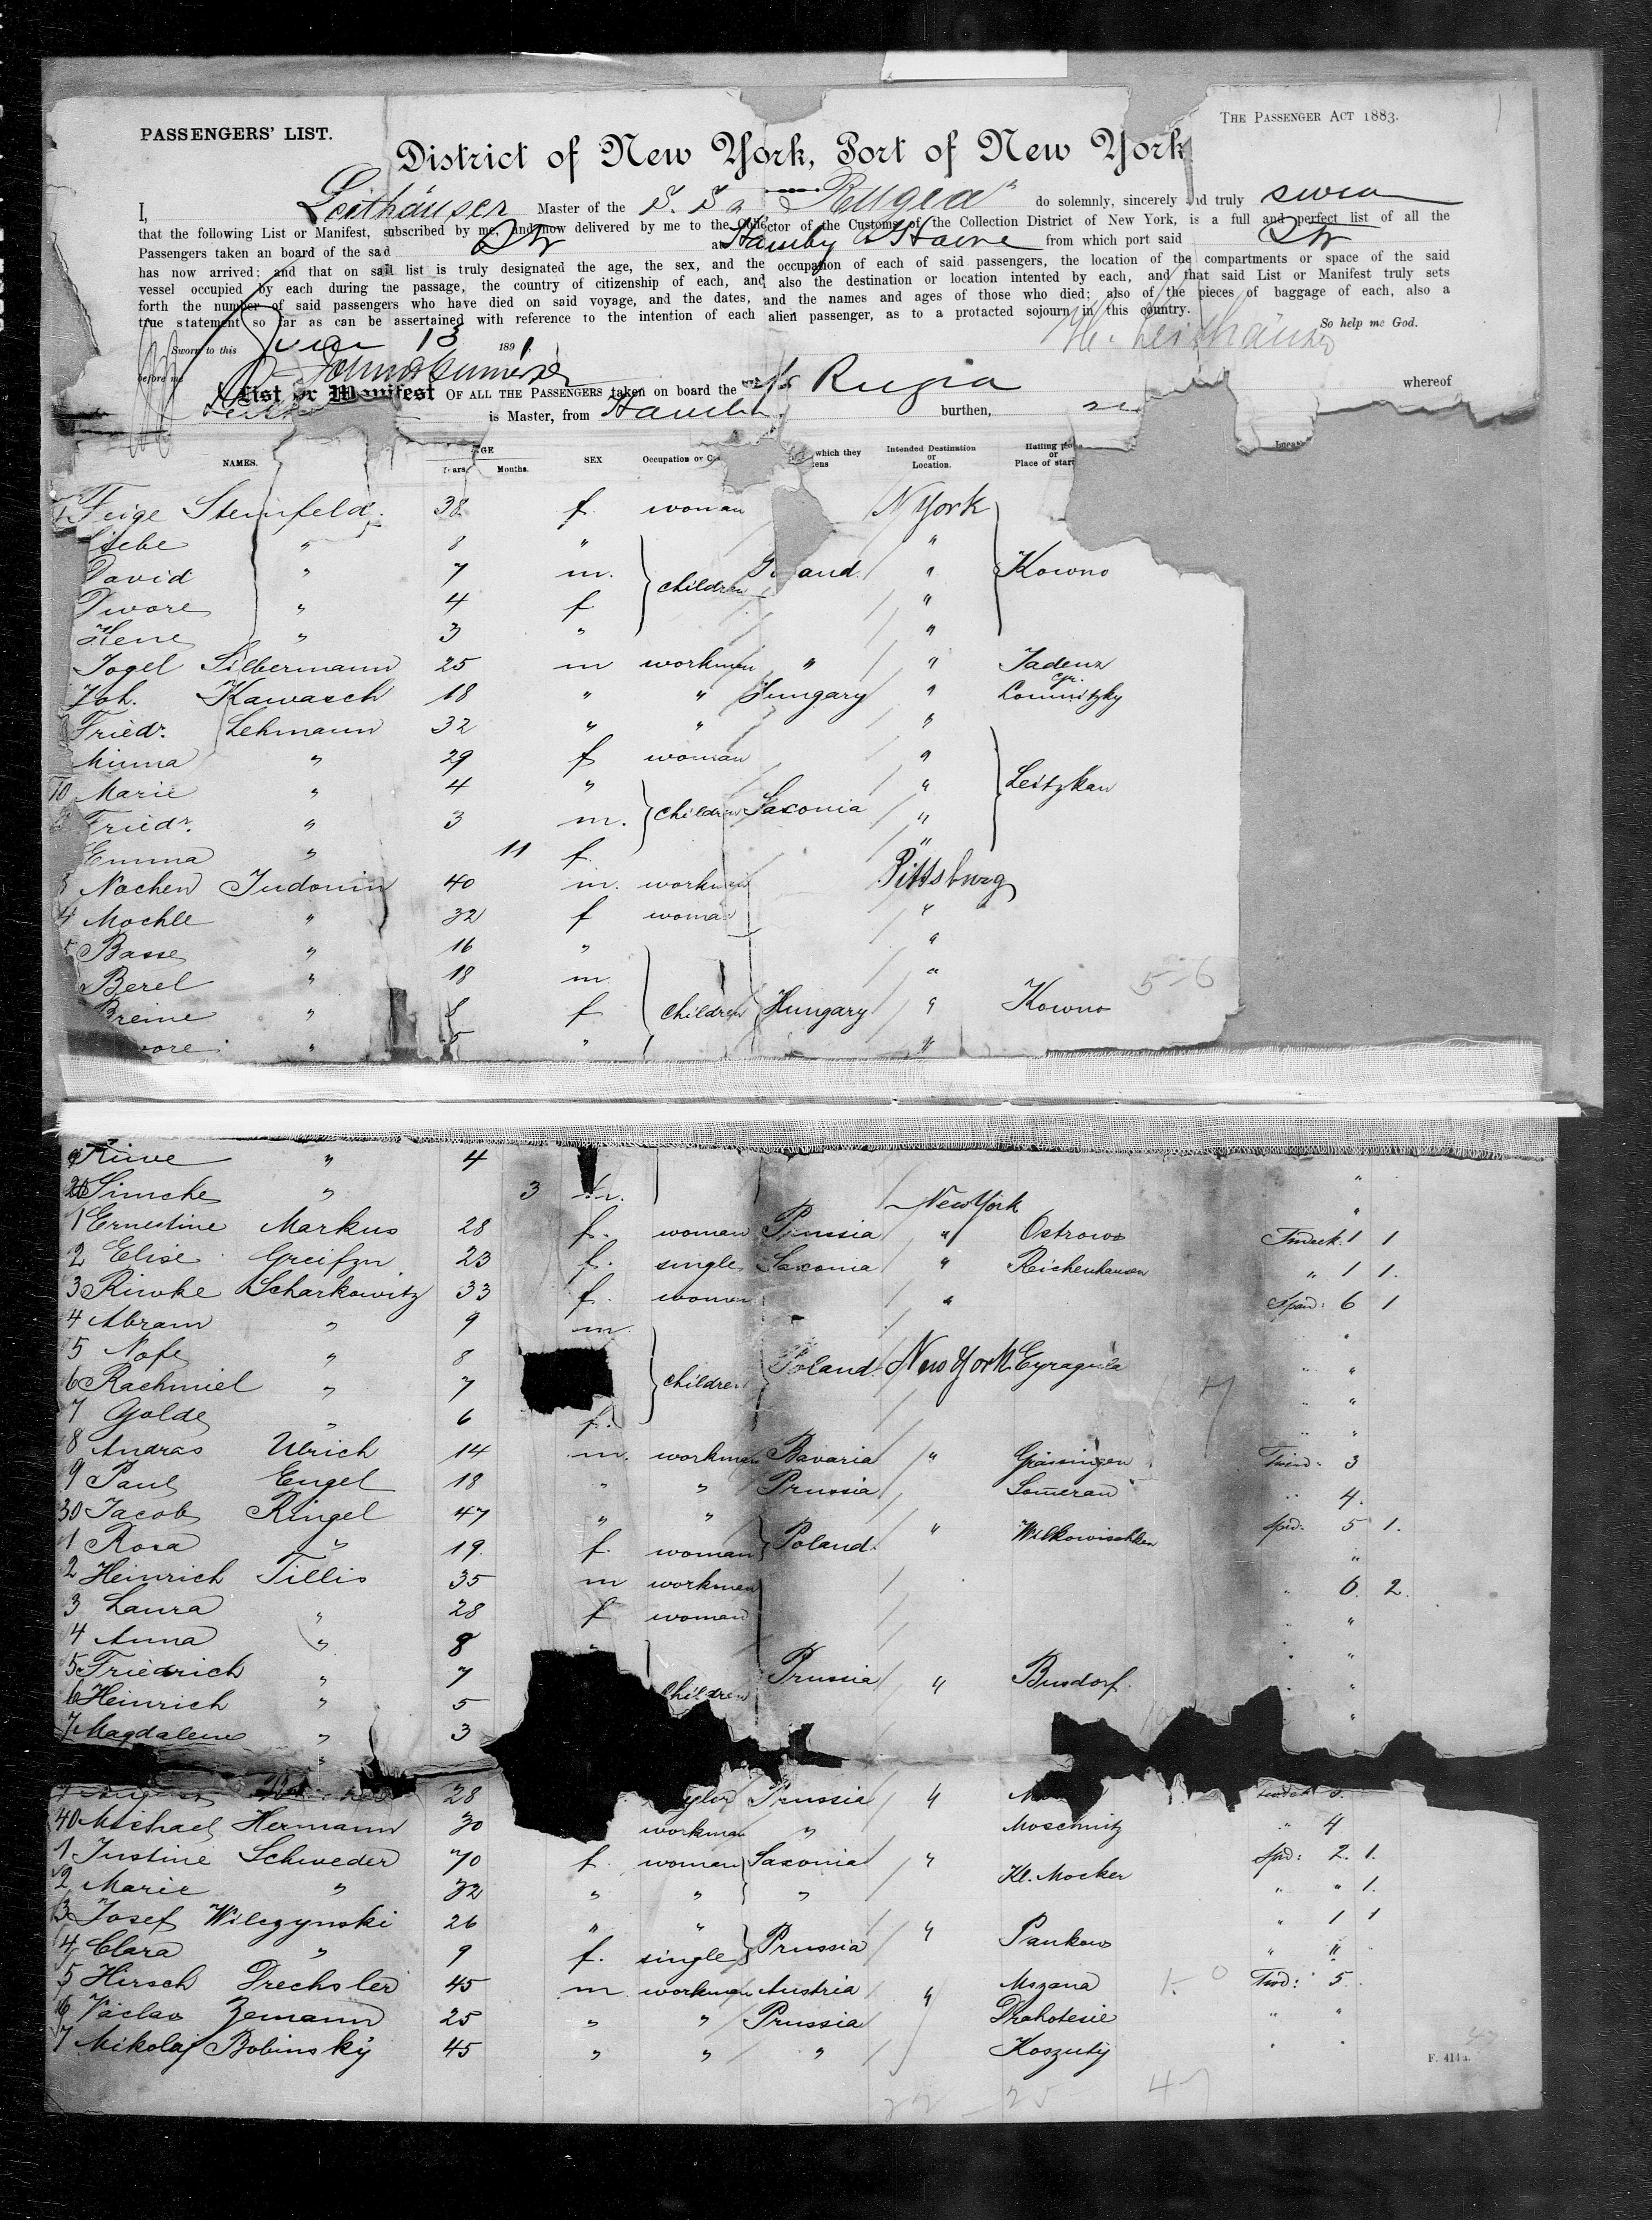 PASSENGERS' LIST.
THE PASSENGER ACT 1883.
District of New York, Port of New York
I, Leithäuser Master of the S. S. "Rugia" do solemnly, sincerely and truly swear
that the following List or Manifest, subscribed by me, and now delivered by me to the Collector of the Customs of the Collection District of New York, is a full and perfect list of all the
Passengers taken on board of the said Str at Hamby & Havre from which port said Str
has now arrived; and that on said list is truly designated the age, the sex, and the occupation of each of said passengers, the location of the compartments or space of the said
vessel occupied by each during the passage, the country of citizenship of each, and also the destination or location intented by each, and that said List or Manifest truly sets
forth the number of said passengers who have died on said voyage, and the dates, and the names and ages of those who died; also of the pieces of baggage of each, also a
true statement so far as can be assertained with reference to the intention of each alien passenger, as to a protacted sojourn in this country.
So help me God.
H. Leithäuser
Sworn to this June 13 1891
before me
List or Manifest OF ALL THE PASSENGERS taken on board the Rugia whereof
is Master, from Hamb burthen,
NAMES. AGE Years Months. SEX Occupation or which they Intended Destination or Location. Hailing place or Place of start
Feige Steinfeld 38 f. woman N York
Liebe " 8 " "
David " 7 m. children and. " Kowno
Dwore " 4 f "
Hene " 3 " "
Jogel Silbermann 25 m workman " " Jadenz
Joh. Kawasch 18 " " Hungary " Lomnitzky
Friedr. Lehmann 32 " " "
Minna " 29 f woman "
10 Marie " 4 " " Leitzkau
Friedr. " 3 m. children Saxonia "
Emma " 11 f. "
3 Nochen Judowin 40 m. workman Pittsburg
4 Mochle " 32 f woman "
5 Basse " 16 " "
Berel " 18 m "
5-6
Breine " 8 f children Hungary " Kowno
wore " 5 " "
Riwe " 4
20 Simche " 3 m. "
New York
1 Ernestine Markus 28 f. woman Prussia " Ostrowo 1 1
2 Elise Greifzn 23 f. single Saxonia " Reichenhausen " 1 1.
3 Riwke Scharkowitz 33 f. woman " 6 1
4 Abram " 9 m. "
5 Nofe " 8 children Poland New York Eyragula " "
6 Rachmiel " 7 " "
7 Golde " 6 f. " "
8 Andras Ulrich 14 m. workman Bavaria " 3
9 Paul Engel 18 " " Prussia Someran " 4.
30 Jacob Ringel 47 " " Poland. " Wilkowischken 5 1.
1 Rosa " 19. f. woman "
2 Heinrich Tillis 35 m workman " 6. 2.
3 Laura " 28 f woman "
4 Anna " 8 " "
5 Friedrich " 7 children Prussia " Busdorf "
6 Heinrich " 5 "
7 Magdalene " 3
August 28 Prussia "
40 Michael Hermann 30 workman " Moschnitz " 4
1 Justine Schweder 70 f. woman Saxonia " Kl. Mocker 2. 1.
2 Marie " 32 " " " " " 1.
3 Josef Wilczynski 26 " " Prussia " Pankow " 1 1
4 Clara " 9 f. single " "
5 Hirsch Drechsler 45 m workman Austria " Mszana 5.
6 Václav Zemann 25 " " Prussia Drahotesie " "
7 Mikolaj Bobinsky 45 " " " Koszuty
F. 411a.
47